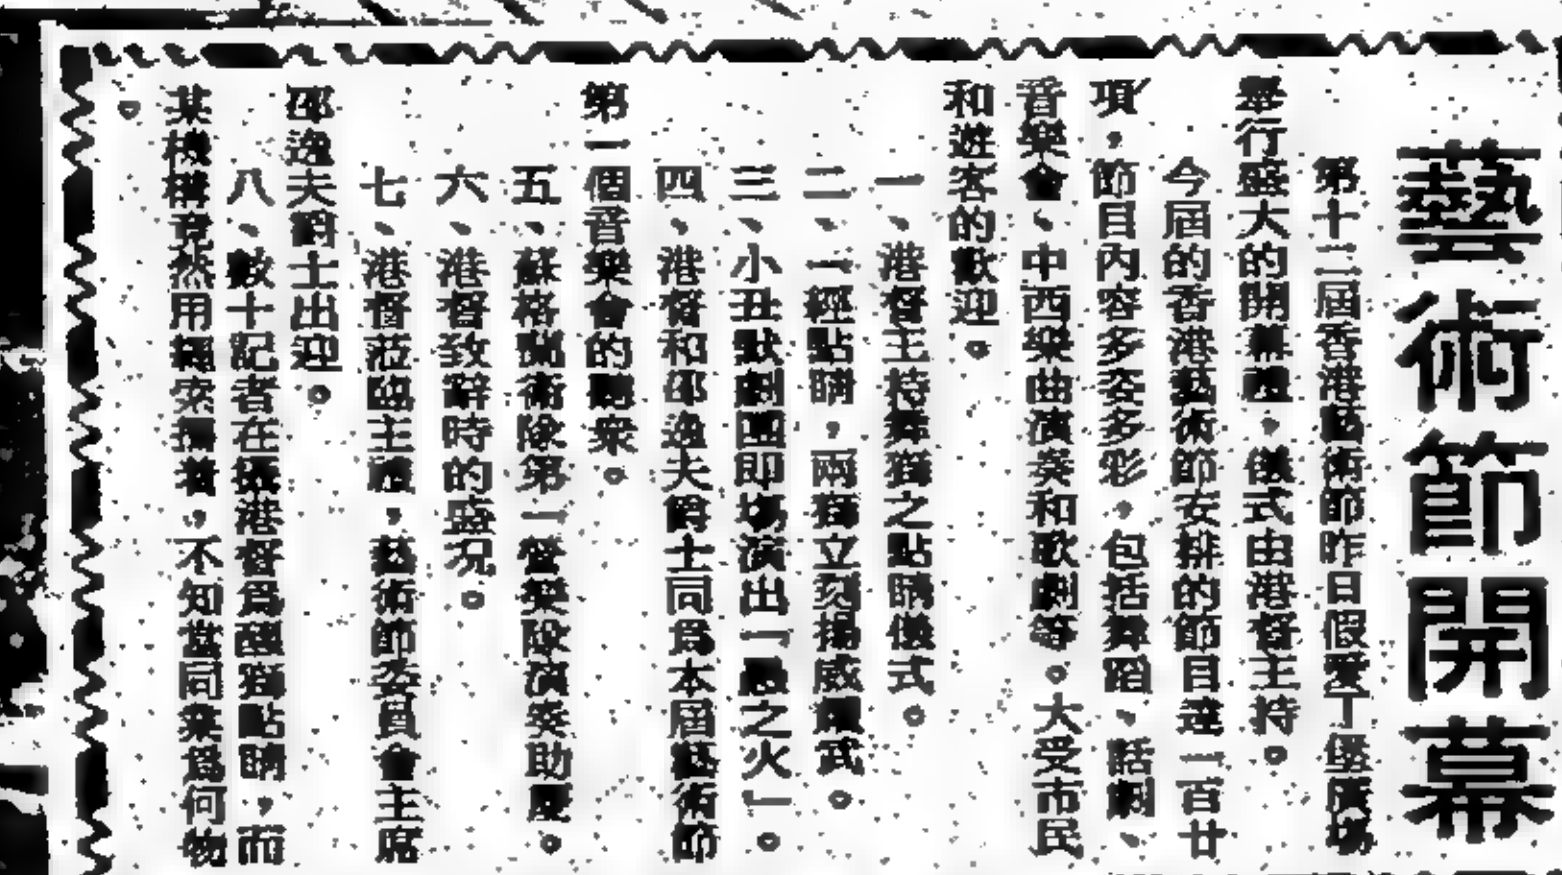 藝術節開幕
第十二屆香港藝術節昨日假愛丁堡廣場
舉行盛大的開幕禮，儀式由港督主持。
今屆的香港藝術節安排的節目達一百廿
項，節目內容多姿多彩，包括舞蹈、話劇、
音樂會、中西樂曲演奏和歌劇等。大受市民
和遊客的歡迎。
一、港督主持舞獅之點睛儀式。
二、一經點睛，兩獅立刻揚威耀武。
三、小丑默劇團即場演出「愚之火」。
四、港督和邵逸夫爵士同爲本屆藝術節
第一個音樂會的聽衆。
五、蘇格蘭衛隊第一營樂隊演奏助慶。
六、港督致辭時的盛況。
七、港督蒞臨主禮，藝術節委員會主席
邵逸夫爵士出迎。
八、數十記者在攝港督爲醒獅點睛，而
某機構竟然用繩索攔着，不知當同業爲何物
。